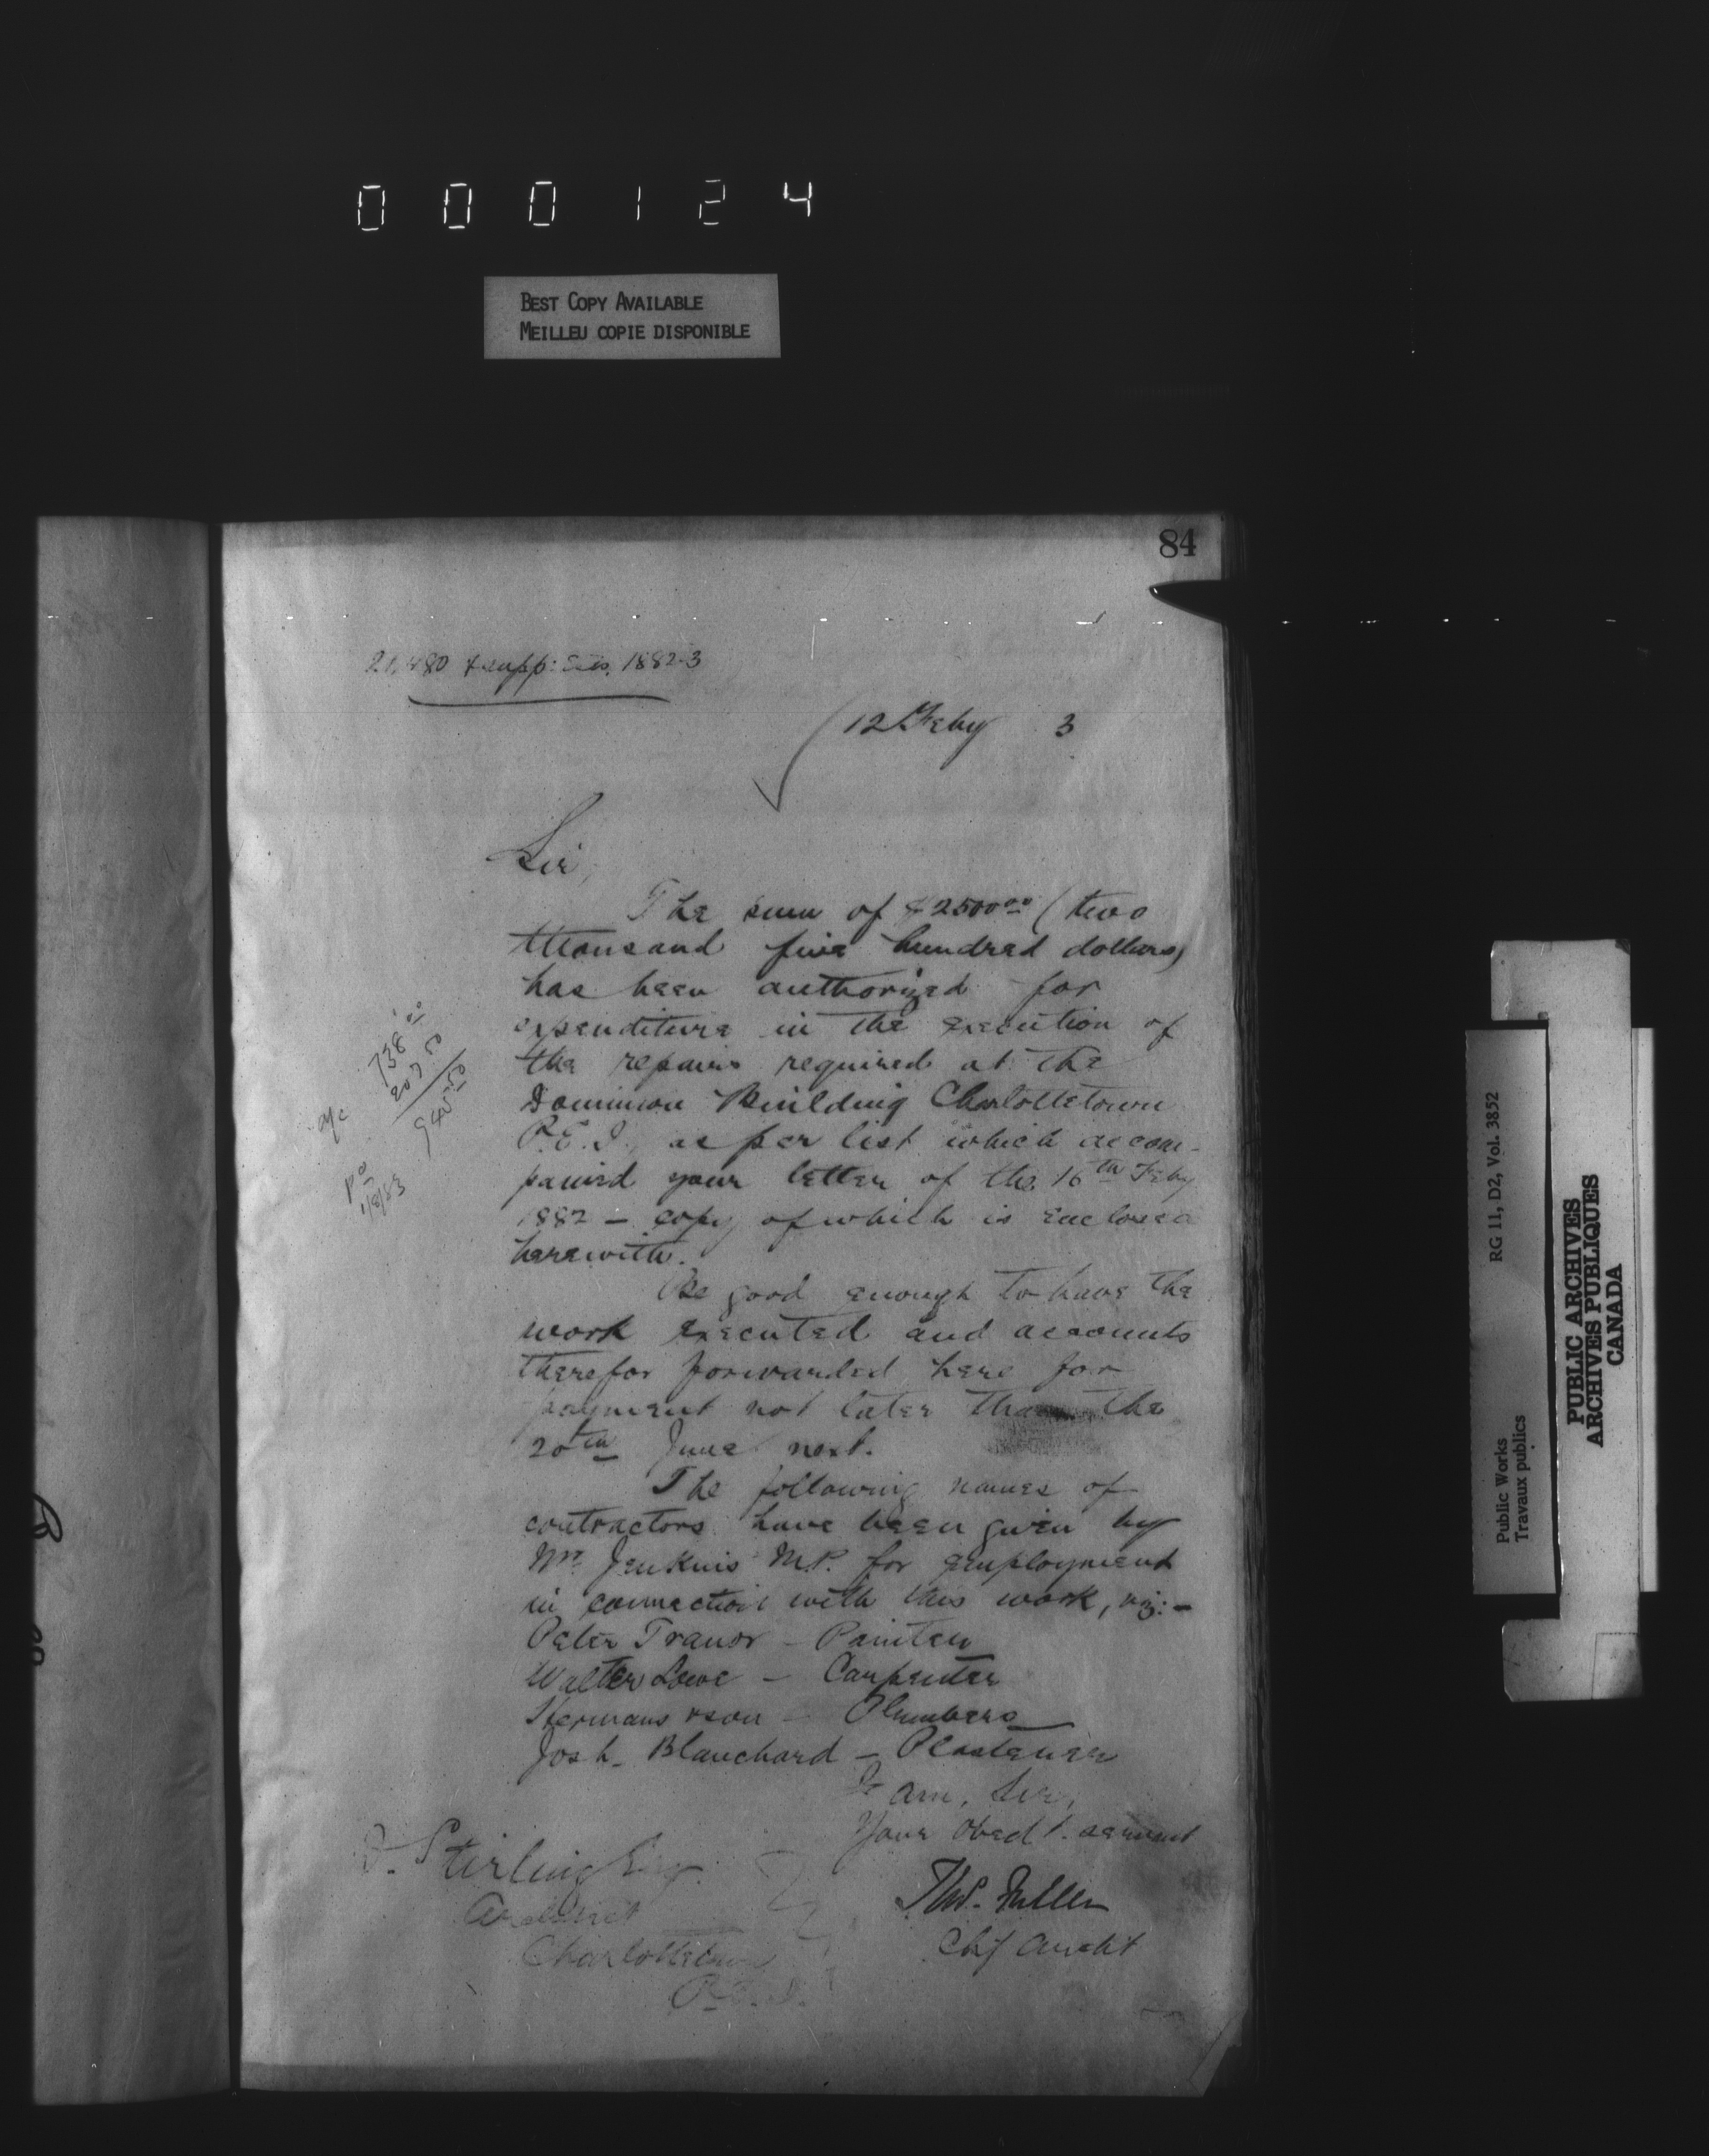 000124
BEST COPY AVAILABLE
MEILLEU COPIE DISPONIBLE
84
21,480 & supp: Ests. 1882-3
12 Feby 3
Sir,
The sum of $2500.00 (two
thousand five hundred dollars)
has been authorized for
expenditure in the execution of
the repairs required at the
Dominion Building Charlottetown
P.E.I., as per list which accom-
panied your letter of the 16th Feby
1882 — copy of which is enclosed
herewith.
Be good enough to have the
work executed and accounts
therefor forwarded here for
payment not later than the
20th June next.
The following names of
contractors have been given by
Mr. Jenkins M.P. for employment
in connection with this work, viz: —
Peter Tranor — Painter
Walter Lowe — Carpenter
Hermans & son — Plumbers
Josh. Blanchard — Plasterer
I am, Sir,
Your Obedt. servant
Thos. Fuller
Chif Archit
D. Stirling Esq.
Architect
Charlottetown
P.E.I.
a/c
738 00
207 50
945 50
1/8/83
RG 11, D2, Vol. 3852
Public Works
Travaux publics
PUBLIC ARCHIVES
ARCHIVES PUBLIQUES
CANADA